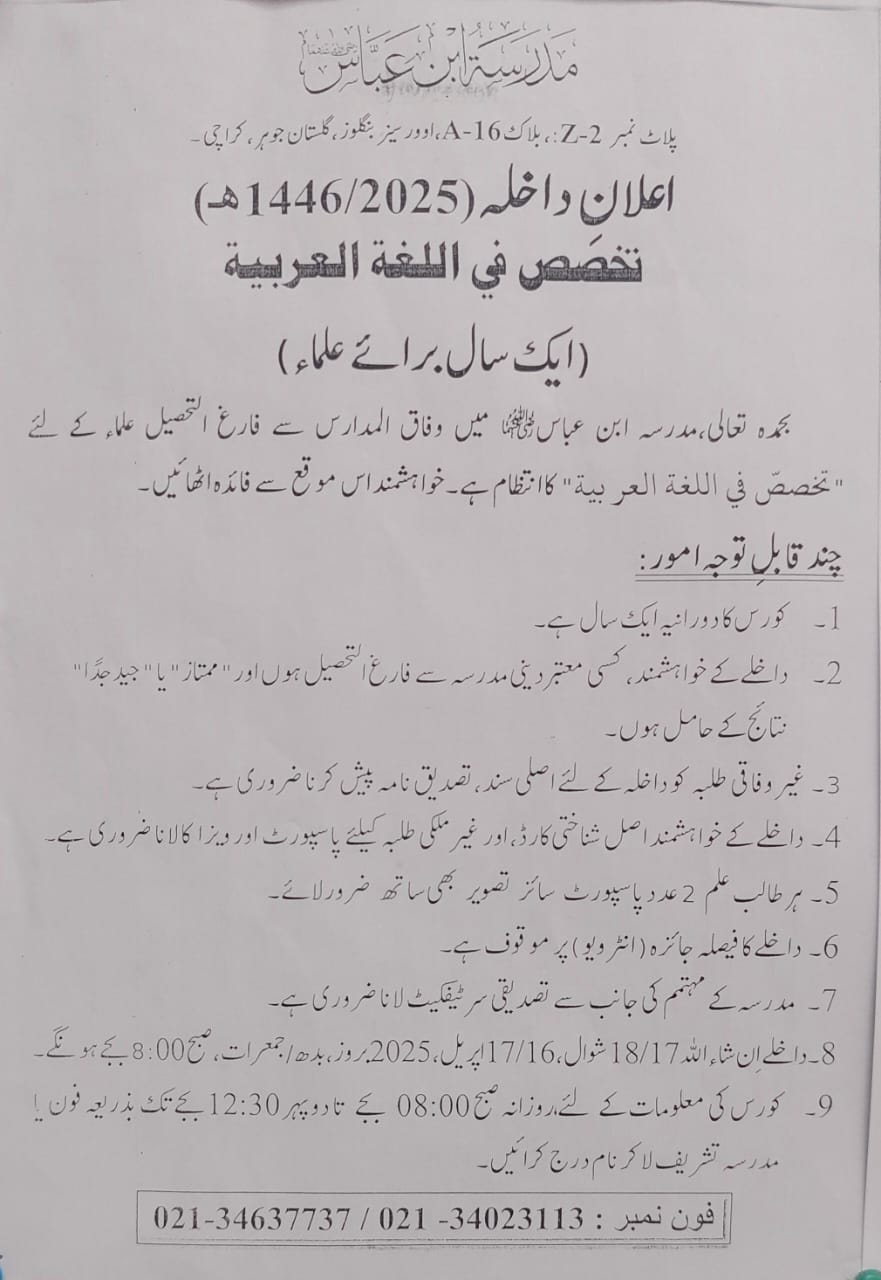 مدرسۃ ابن عباس رضی اللہ عنہما
پلاٹ نمبر Z-2:، بلاک A-16، اوورسیز بنگلوز، گلستان جوہر، کراچی۔
اعلانِ داخلہ (1446/2025ھ)
تخصص في اللغة العربية
(ایک سال برائے علماء)
بحمدہ تعالی، مدرسہ ابن عباس رضی اللہ عنہما میں وفاق المدارس سے فارغ التحصیل علماء کے لئے
"تخصصّ في اللغة العربية" کا انتظام ہے۔ خواہشمند اس موقع سے فائدہ اٹھائیں۔
چند قابلِ توجہ امور:
1۔ کورس کا دورانیہ ایک سال ہے۔
2۔ داخلے کے خواہشمند، کسی معتبر دینی مدرسہ سے فارغ التحصیل ہوں اور "ممتاز" یا "جید جدًا"
نتائج کے حامل ہوں۔
3۔ غیر وفاقی طلبہ کو داخلہ کے لئے اصلی سند، تصدیق نامہ پیش کرنا ضروری ہے۔
4۔ داخلے کے خواہشمند اصل شناختی کارڈ، اور غیر ملکی طلبہ کیلئے پاسپورٹ اور ویزا کا لانا ضروری ہے۔
5۔ ہر طالب علم 2 عدد پاسپورٹ سائز تصویر بھی ساتھ ضرور لائے۔
6۔ داخلے کا فیصلہ جائزہ (انٹرویو) پر موقوف ہے۔
7۔ مدرسہ کے مہتمم کی جانب سے تصدیقی سرٹیفکیٹ لانا ضروری ہے۔
8۔ داخلے اِن شاء اللہ 18/17 شوال، 17/16 اپریل، 2025 بروز، بدھ/جمعرات، صبح 8:00 بجے ہونگے۔
9۔ کورس کی معلومات کے لئے، روزانہ صبح 08:00 بجے تا دوپہر 12:30 بجے تک بذریعہ فون یا
مدرسہ تشریف لا کر نام درج کرائیں۔
فون نمبر : 34023113- 021 / 021-34637737